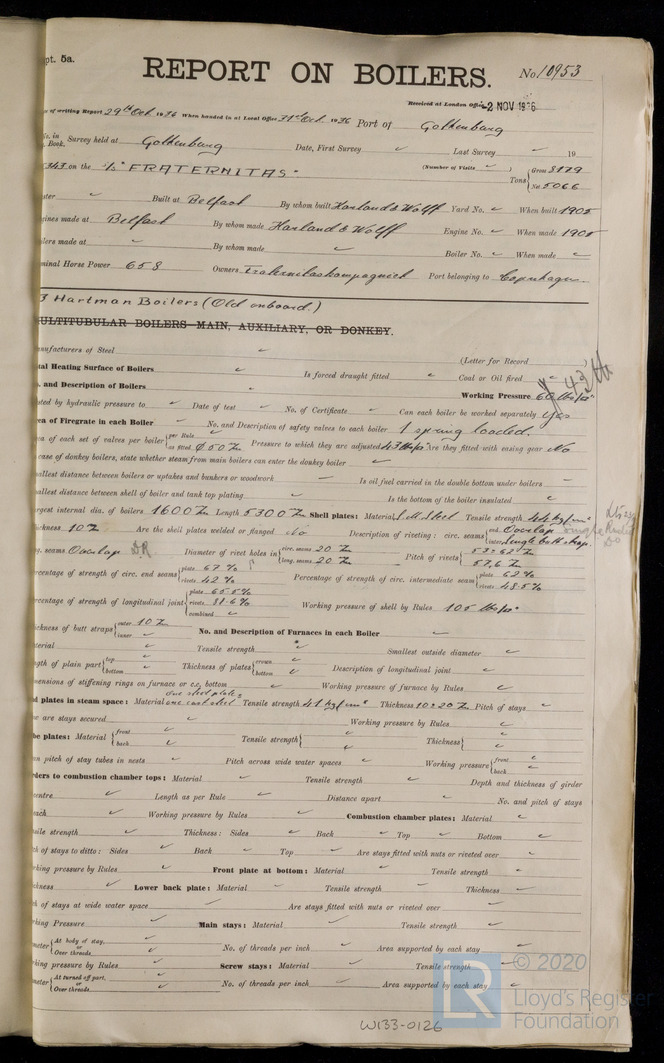 pt. 5a.
REPORT ON BOILERS.
No. 10953
Received at London Office -2 NOV 1936
of writing Report 29th Oct 1936 When handed in at Local Office 31st Oct. 1936 Port of Gothenburg
No. in Survey held at Gothenburg Date, First Survey ✓ Last Survey ✓ 19
Book.
on the "FRATERNITAS" (Number of Visits ✓ ) Tons { Gross 8179
Net 5066
ster ✓ Built at Belfast By whom built Harland & Wolff Yard No. ✓ When built 1905
gines made at Belfast By whom made Harland & Wolff Engine No. ✓ When made 1905
ilers made at ✓ By whom made ✓ Boiler No. ✓ When made ✓
minal Horse Power 658 Owners Port belonging to Copenhagen
3 Hartman Boilers (Old onboard.)
ULTITUBULAR BOILERS—MAIN, AUXILIARY, OR DONKEY.
anufacturers of Steel ✓ (Letter for Record )
tal Heating Surface of Boilers ✓ Is forced draught fitted ✓ Coal or Oil fired ✓
. and Description of Boilers ✓ Working Pressure 60 lbs/□"
sted by hydraulic pressure to ✓ Date of test ✓ No. of Certificate ✓ Can each boiler be worked separately Yes
ea of Firegrate in each Boiler ✓ No. and Description of safety valves to each boiler 1 spring loaded.
ea of each set of valves per boiler { per Rule
as fitted Ø 50 Pressure to which they are adjusted 43 lbs/□" Are they fitted with easing gear No
case of donkey boilers, state whether steam from main boilers can enter the donkey boiler ✓
mallest distance between boilers or uptakes and bunkers or woodwork ✓ Is oil fuel carried in the double bottom under boilers ✓
mallest distance between shell of boiler and tank top plating ✓ Is the bottom of the boiler insulated ✓
argest internal dia. of boilers 1600 Length 5300 Shell plates: Material S.M. Steel Tensile strength 44 kg/
hickness 10 Are the shell plates welded or flanged No Description of riveting: circ. seams { end Overlap
inter. Single butt strap
ng. seams Overlap D.R. Diameter of rivet holes in { circ. seams 20
long. seams 20 Pitch of rivets { 53 62
57,6
ercentage of strength of circ. end seams { plate 67 %
rivets 42 % Percentage of strength of circ. intermediate seam { plate 62 %
rivets 48.5 %
ercentage of strength of longitudinal joint { plate 65.5 %
rivets
combined ✓ Working pressure of shell by Rules 105 lbs/□"
hickness of butt straps { outer 10
inner ✓ No. and Description of Furnaces in each Boiler ✓
aterial ✓ Tensile strength ✓ Smallest outside diameter ✓
ngth of plain part { top ✓
bottom ✓ Thickness of plates { crown ✓
bottom ✓ Description of longitudinal joint ✓
mensions of stiffening rings on furnace or c.c. bottom ✓ Working pressure of furnace by Rules ✓
d plates in steam space: Material one steel plate
one cast steel Tensile strength 41 kg/ Thickness 10 & 20 Pitch of stays ✓
ow are stays secured ✓ Working pressure by Rules ✓
be plates: Material { front ✓
back ✓ Tensile strength { ✓
✓ Thickness { ✓
✓
an pitch of stay tubes in nests ✓ Pitch across wide water spaces ✓ Working pressure { front ✓
back ✓
rders to combustion chamber tops: Material ✓ Tensile strength ✓ Depth and thickness of girder
centre ✓ Length as per Rule ✓ Distance apart ✓ No. and pitch of stays
each ✓ Working pressure by Rules ✓ Combustion chamber plates: Material ✓
nsile strength ✓ Thickness: Sides ✓ Back ✓ Top ✓ Bottom ✓
tch of stays to ditto: Sides ✓ Back ✓ Top ✓ Are stays fitted with nuts or riveted over ✓
rking pressure by Rules ✓ Front plate at bottom: Material ✓ Tensile strength ✓
ickness ✓ Lower back plate: Material ✓ Tensile strength ✓ Thickness ✓
h of stays at wide water space ✓ Are stays fitted with nuts or riveted over ✓
rking Pressure ✓ Main stays: Material ✓ Tensile strength ✓
meter { At body of stay, ✓
or
Over threads ✓ No. of threads per inch ✓ Area supported by each stay ✓
rking pressure by Rules ✓ Screw stays: Material ✓ Tensile strength ✓
meter { At turned off part, ✓
or
Over threads ✓ No. of threads per inch ✓ Area supported by each stay ✓
W133-0126
LR
© 2020
Lloyd's Register
Foundation